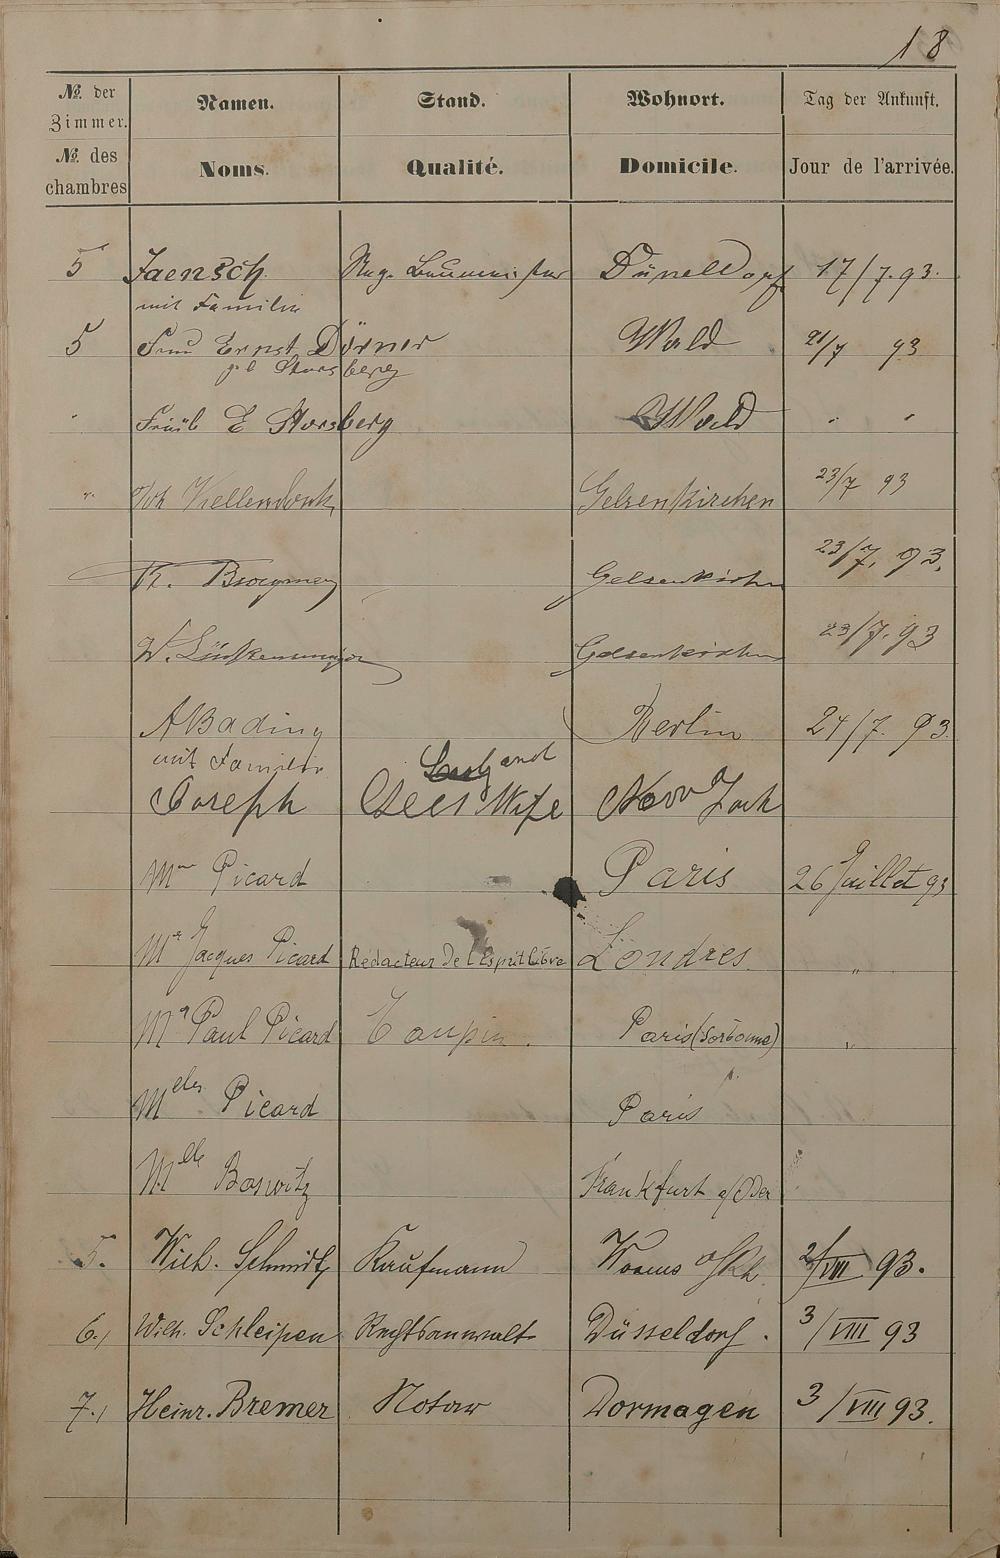 18
No. der Zimmer. Namen. Stand. Wohnort. Tag der Ankunft.
No. des chambres Noms. Qualité. Domicile. Jour de l'arrivée.
5 Jaensch Reg. Baumeister Düsseldorf 17/7. 93.
mit Familie
5 Frau Ernst Dörner Wald 21/7 93
Storsberg
" E Storsberg Wald " "
" Kellermann Gelsenkirchen 23/7 93
Gelsenkirchen 23/7. 93.
W. Gelsenkirchen 23/7. 93
A Bading Berlin 24/7. 93.
mit Familie
and
Joseph Wife New York
Mme Picard Paris 26 Juillet 93
Mr Jacques Picard Rédacteur de l'Esprit Libre Londres "
Mr Paul Picard Taupin. Paris (Sorbonne) "
Melles Picard Paris
Melle Boswitz Frankfurt a/Oder
5. Wilh. Schmidt Kaufmann Worms a/Rh. 2/VIII 93.
6., Wilh. Schleipen Rechtsanwalt Düsseldorf. 3/VIII 93
7., Heinr. Bremer Notar Dormagen 3/VIII 93.